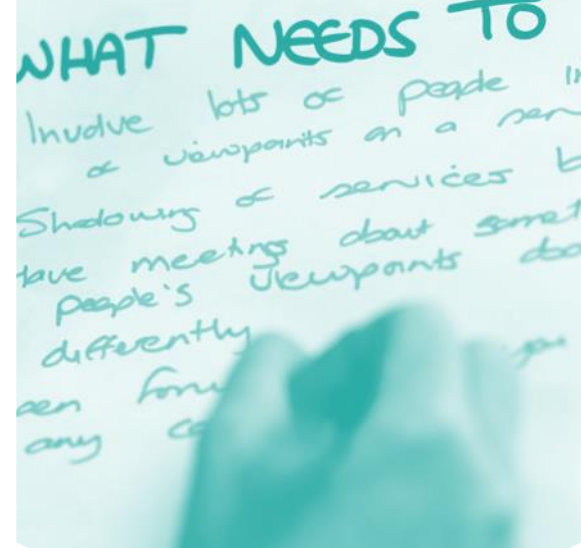 WHAT NEEDS TO
Involve lots of people in
of viewpoints on a
Shadowing of services
Have meetings about
people's viewpoints
differently
any